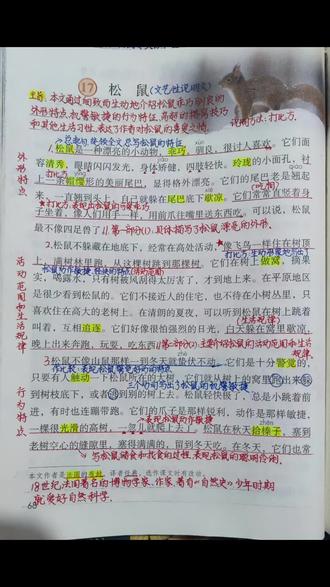 17 松鼠(文艺性说明文)
主旨:本文通过细致而生动地介绍松鼠乖巧驯良的
外形特点、机警敏捷的行为特征、高超的搭窝技巧
和其他生活习性,表达了作者对松鼠的喜爱之情。
说明方法:打比方、
总起句:统领全文,总写松鼠的特点
1.松鼠是一种漂亮的小动物,乖巧,驯良,很讨人喜欢。它们面
容清秀,眼睛闪闪发光,身体矫健,四肢轻快。玲珑的小面孔,衬
打比方
上一条帽缨形的美丽尾巴,显得格外漂亮。它们的尾巴老是翘起
来,一直翘到头上,自己就躲在尾巴底下歇凉。它们常常直竖着身
打比方:表现出松鼠的可爱乖巧
子坐着,像人们用手一样,用前爪往嘴里送东西吃。可以说,松鼠
最不像四足兽了。
第一部分(1):具体描写了松鼠漂亮的外形。
2.松鼠不躲藏在地底下,经常在高处活动,像飞鸟一样住在树顶
上,满树林里跑,从这棵树跳到那棵树。它们在树上做窝,摘果
松鼠动作敏捷、轻快的特点(活动范围)
实,喝露水,只有树被风刮得太厉害了,才到地上来。在平原地区
是很少看到松鼠的。它们不接近人的住宅,也不待在小树丛里,只
喜欢住在高大的老树上。在清朗的夏夜,可以听到松鼠在树上跳着
(生活规律)
叫着,互相追逐。它们好像很怕强烈的日光,白天躲在窝里歇凉,
晚上出来奔跑,玩耍,吃东西。
第二部分(2):主要介绍松鼠的活动范围和生活
规律。
3.松鼠不像山鼠那样一到冬天就蛰伏不动。它们是十分警觉的,
作比较:表现松鼠警觉好动的特点
只要有人触动一下松鼠所在的大树,它们就从树上的窝里跑出来躲
三个动词写出了松鼠的机警敏捷
到树枝底下,或者逃到别的树上去。松鼠轻快极了,总是小跳着前
进,有时也连蹦带跑。它们的爪子是那样锐利,动作是那样敏捷,
表现松鼠动作敏捷
一棵很光滑的高树,一忽儿就爬上去了。松鼠在秋天拾榛子,塞到
老树空心的缝隙里,塞得满满的,留到冬天吃。在冬天,它们也常
写松鼠储食和找食的过程,表现松鼠的聪明伶俐。
外形特点
活动范围和生活规律
行为特点
本文作者是法国的布封,译者任典,选作课文时有改动。
18世纪,法国著名的博物学家、作家,著有《自然史》少年时期
就爱好自然科学.
68